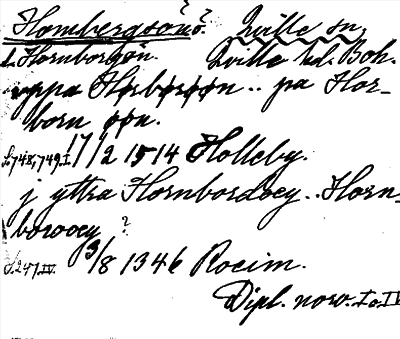 Hornbergsön? ? Qville sn.
d. Hornborgön. Qville hd. Boh.
uppa Horborøøn.. pa Hor-
born øøn.
s. 748, 749.I. 17/2 1514 Holleby.
j yttra Hornbordoey.. Horn-
borooey ?
S. 247.IV. 3/8 1346 Rocim.
Dipl. norv. I o. IV